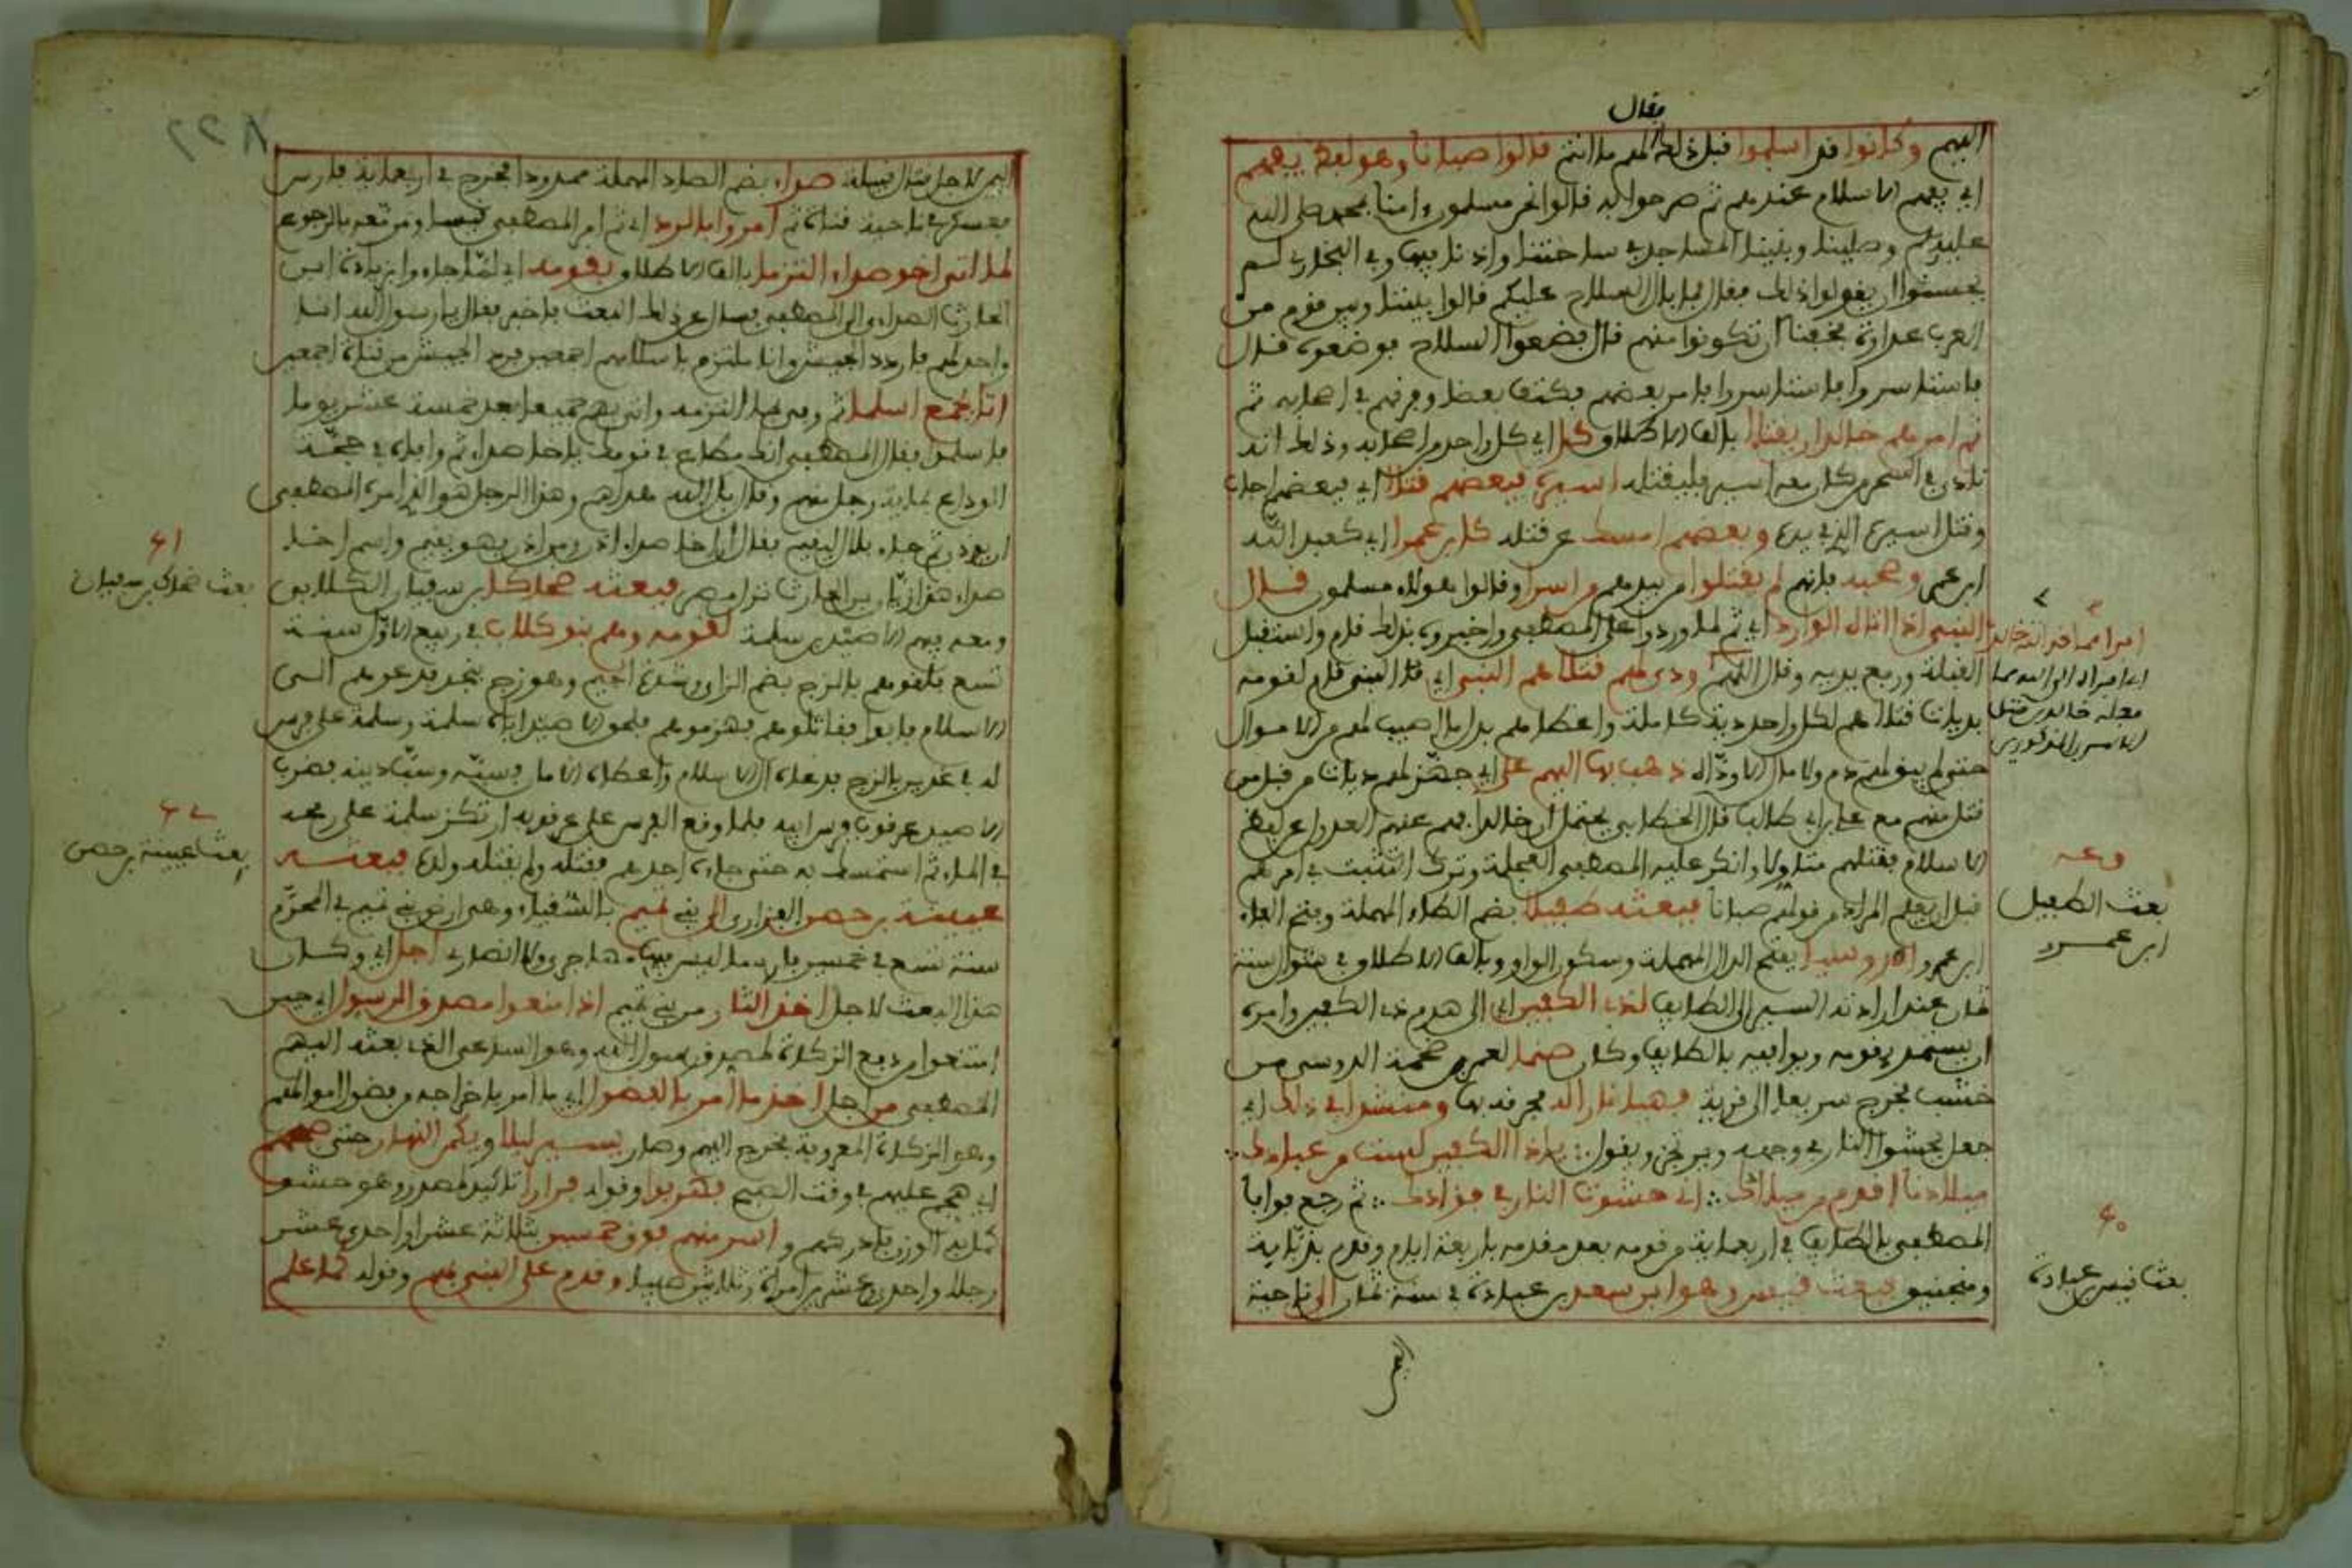 فقال
اليهم وكانوا قد اسلموا قبل ذلك لهم ما انتم قالوا صبانا وهو لفظ يفهم
اي يفهم الاسلام عندهم ثم صرحوا له قالوا نحن مسلمون وامنا بمحمد صلى الله
عليه وسلم وصلينا وبنينا المساجد في ساحتنا واذنا فيها وفي البخاري لم
يحسنوا ان يقولوا ذلك فقال فما بال السلاح عليكم قالوا بيننا وبين قوم من
العرب عداوة فخفنا ان تكونوا منهم قال فضعوا السلاح فوضعوه فقال
فاستاسروا فاستاسروا فامر بعضهم فكتف بعضا وفرقهم في اصحابه ثم
ثم امرهم خالد ان يقتلا بالف الاطلاق كل اي كل واحد من اصحابه وذلك انه
نادى في السحر من كان معه اسير فليقتله اسيره فبعضهم قتلا اي فبعضهم اجاب
وقتل اسيره الذي بيده وبعضهم امسك عن قتله كابن عمرا اي كعبد الله
ابن عمر وصحبه فانهم لم يقتلوا من بيدهم من اسرا وقالوا هولاء مسلمون قال
النبي اذ اتاه الوارد اي ثم لما وردوا على المصطفى واخبروه بذلك قام واستقبل
القبلة ورفع يديه وقال اللهم ودى لهم قتلاهم النبي اي قال النبي قام لقومه
بديات قتلاهم لكل واحد دية كاملة واعطاهم بدل ما اصيب لهم من الاموال
حتى لم يبق لهم دم ولا مال الا وداه ذهب بها اليهم علي اي جهز لهم ديات من قبل من
قتل منهم مع علي بن ابي طالب قال الخطابي يحتمل ان خالدا فهم عنهم العدول عن لفظ
الاسلام فقتلهم متاولا وانكر عليه المصطفى العجلة وترك التثبت في امرهم
قبل ان يعلم المراد من قولهم صبانا فبعثه طفيلا بضم الطاء المهملة وفتح الفاء
ابن عمرو الدوسيا بفتح الدال المهملة وسكون الواو وبالف الاطلاق في شوال سنة
ثمان عند ارادته السير الى الطايف لذي الكفين اي الى هدم ذي الكفين وامره
ان يستمد بقومه ويوافيه بالطايف وكان صنما لعمرو بن حممة الدوسي من
خشب فخرج سريعا الى قومه فهد نارا له فحرقه بها ومنشدا في ذلك اي
جعل يحشو النار في وجهه ويرتجز ويقول يا ذا الكفين لست من عبادك
ميلادنا اقدم من ميلادك اني حشوت النار في فؤادك ثم رجع فوافا
المصطفى بالطايف في اربعماية من قومه بعد مقدمه باربعة ايام وقدم بدبابة
ومنجنيق فبعث قيس وهو ابن سعد بن عبادة في سنة ثمان الى ناحية
اليمن
امرا مما قد اتاه خالد
اي ابرا الى الله مما
فعله خالد من قتل
الاسرى المذكورين
بعث الطفيل
ابن عمرو
٤٠
بعث قيس بن عبادة
اليمن لاجل قتال قبيلة صداء بضم الصاد المهملة ممدودا فخرج في اربعماية فارس
فعسكر في ناحية قناة ثم امروا بالرد اي ثم امر المصطفى قيسا ومن معه بالرجوع
لما اتى اخو صداء التزما بالف الاطلاق بقومه اي لما جاء وا زياد ابن
الحارث الصداءي الى المصطفى فسال عن ذلك البعث فاخبر فقال يا رسول الله انا
وافدهم فاردد الجيش وانا ملتزم باسلامهم اجمعين فرد الجيش من قناة اجمعين
اتا بجمع اسلما ثم وفى بما التزمه واتى بهم جميعا بعد خمسة عشر يوما
فاسلموا فقال المصطفى انك مطاع في قومك يا اخا صداء ثم وافاه في حجة
الوداع بماية رجل منهم وقال بل الله هداهم وهذا الرجل هو الذي امره المصطفى
ان يؤذن ثم جاء بلال ليقيم فقال ان اخا صداء اذن ومن اذن فهو يقيم واسم اخا
صداء هذا زياد بن الحارث نزل مصر فبعثه ضحاكا بن سفيان الكلابي
ومعه فيهم الاصيد بن سلمة لقومه وهم بنو كلاب في ربيع الاول سنة
تسع فلقوهم بالزج بضم الزاي وشدة الجيم وهو زج بنجد فدعوهم الى
الاسلام فابوا فقاتلوهم فهزموهم فلحق الاصيد اباه سلمة وسلمة على فرس
له في غدير بالزج فدعاه الى الاسلام واعطاه الامان فسبه وسب دينه فضرب
الاصيد عرقوب فرس ابيه فلما وقع الفرس على عرقوبه ارتكز سلمة على رمحه
في الماء ثم استمسك به حتى جاءه احدهم فقتله ولم يقتله ولده فبعثه
عيينة بن حصن الفزاري الى بني تميم بالسقيا وهي ارض بني تميم في المحرم
سنة تسع في خمسين فارسا ليس فيها مهاجري ولا انصاري اجل اي وكان
هذا البعث لاجل اخذ الثار من بني تميم اذ امنعوا مصدق الرسول اي حين
امتنعوا من دفع الزكاة لمصدق رسول الله وهو الساعي الذي بعثه اليهم
المصطفى من اجل اخذ ما امر بالفضل اي ما امر باخراجه من فضول اموالهم
وهو الزكاة المعروفة فخرج اليهم وصار يسير ليلا ويكمن النهار حتى صبحهم
اي هجم عليهم في وقت الصبح فهربوا وقوله فرارا تاكيد لمصدر وهو حشو
كمل به الوزن فادركهم واسر منهم فوق خمسين ثلاثة عشر او احدى عشر
رجلا واحدى وعشرين امراة وثلاثين صبيا وقدم على النبي بهم وقوله كما علم
٤١
بعث ضحاك بن سفيان
بعث عيينة بن حصن